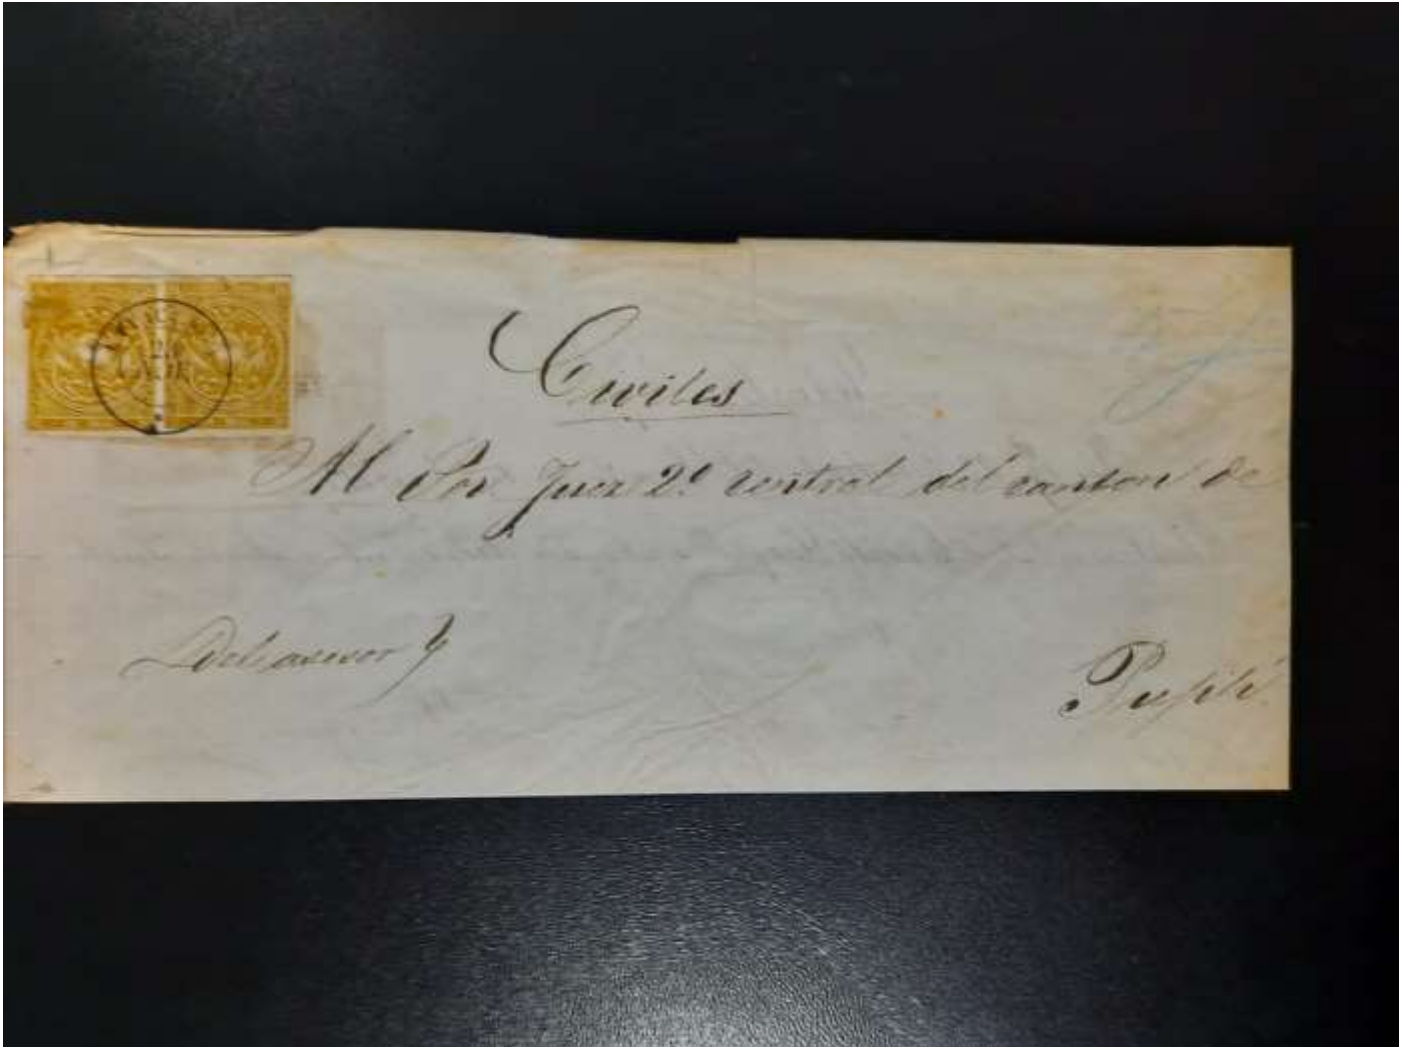 Civiles
Al Sor Juez 2º central del canton de
Del asesor
Pujilí